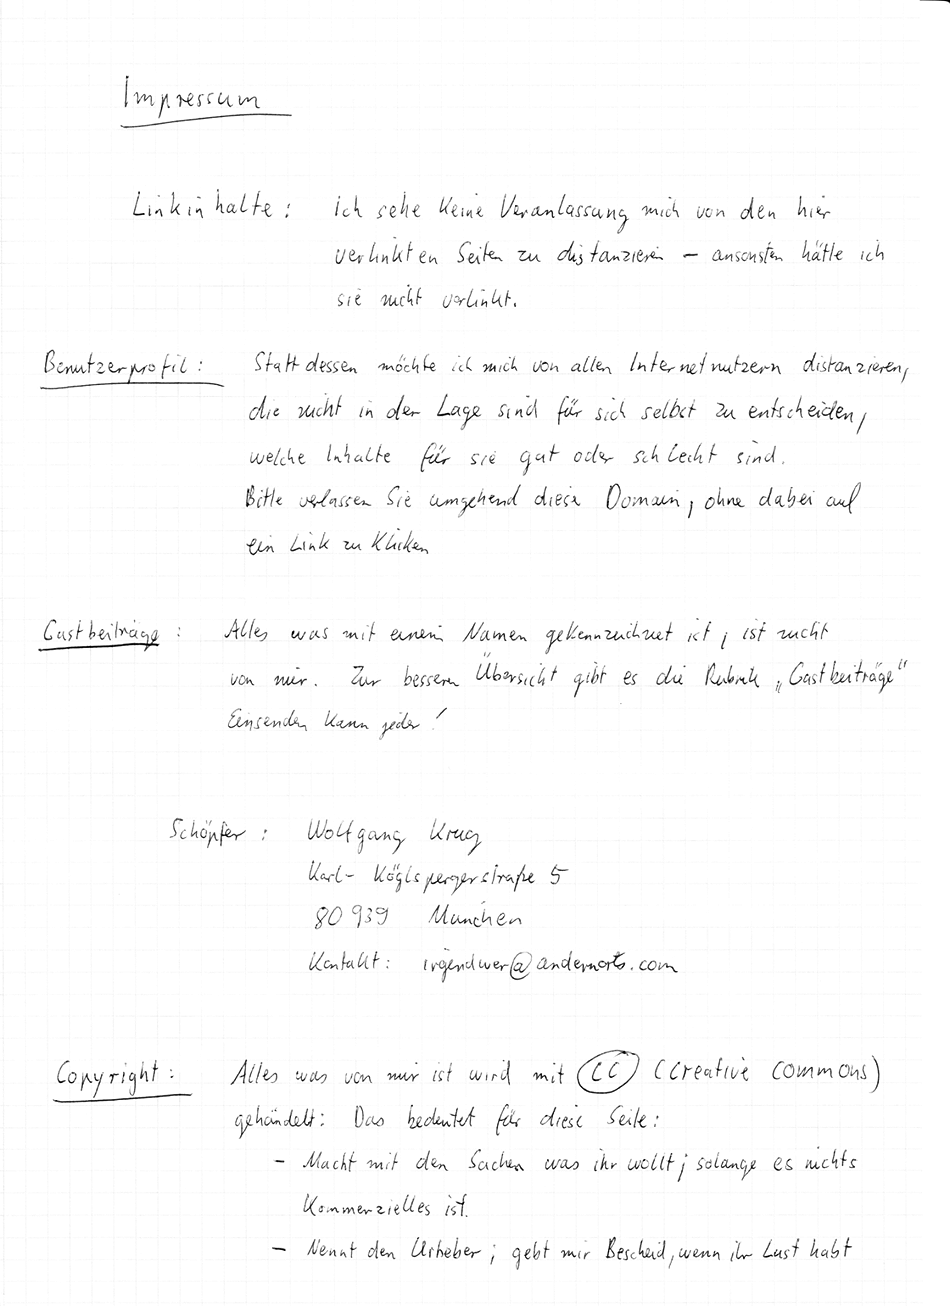 Impressum
Linkinhalte: Ich sehe keine Veranlassung mich von den hier
verlinkten Seiten zu distanzieren – ansonsten hätte ich
sie nicht verlinkt.
Benutzerprofil: Stattdessen möchte ich mich von allen Internetnutzern distanzieren,
die nicht in der Lage sind für sich selbst zu entscheiden,
welche Inhalte für sie gut oder schlecht sind.
Bitte verlassen Sie umgehend diese Domain, ohne dabei auf
ein Link zu klicken
Gastbeiträge: Alles was mit einem Namen gekennzeichnet ist, ist nicht
von mir. Zur besseren Übersicht gibt es die Rubrik „Gastbeiträge"
Einsenden kann jeder!
Schöpfer: Wolfgang Krug
Karl-Köglspergerstraße 5
80939 München
Kontakt: irgendwer@andernorts.com
Copyright: Alles was von mir ist wird mit CC (Creative Commons)
gehändelt: Das bedeutet für diese Seite:
– Macht mit den Sachen was ihr wollt; solange es nichts
Kommerzielles ist.
– Nennt den Urheber; gebt mir Bescheid, wenn ihr Lust habt